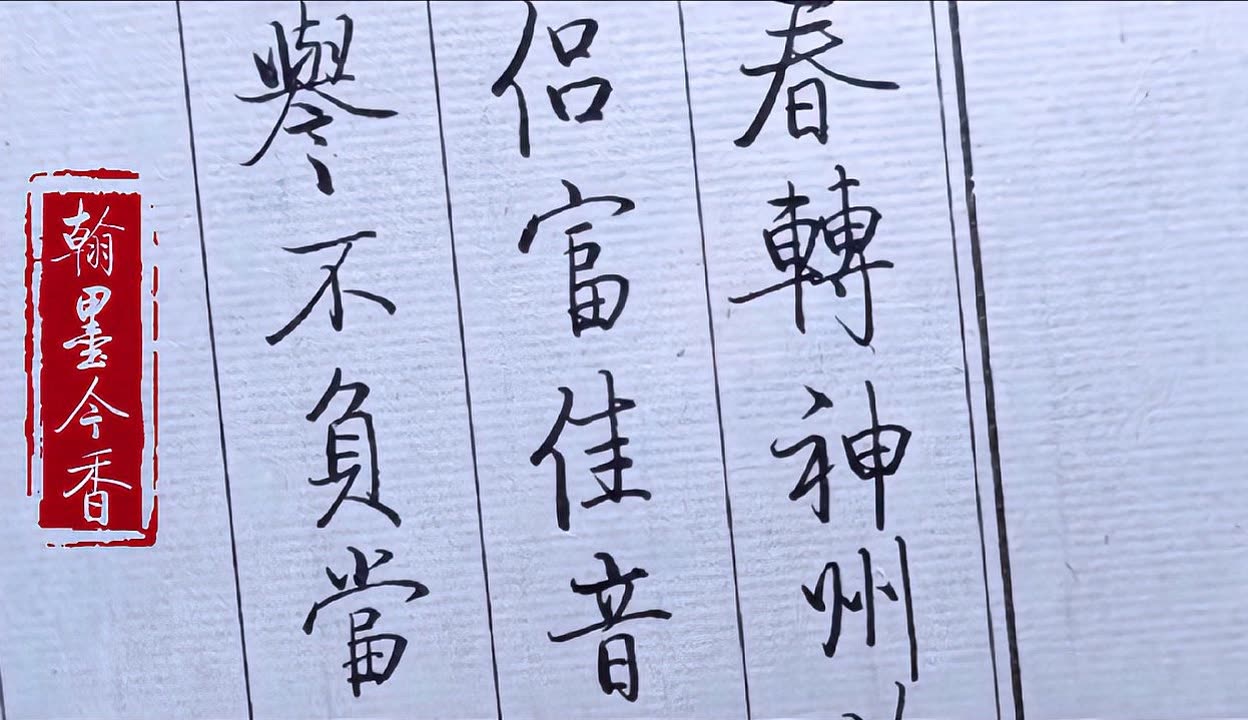 春轉神州
侣富佳音
譽不負當
翰墨今香